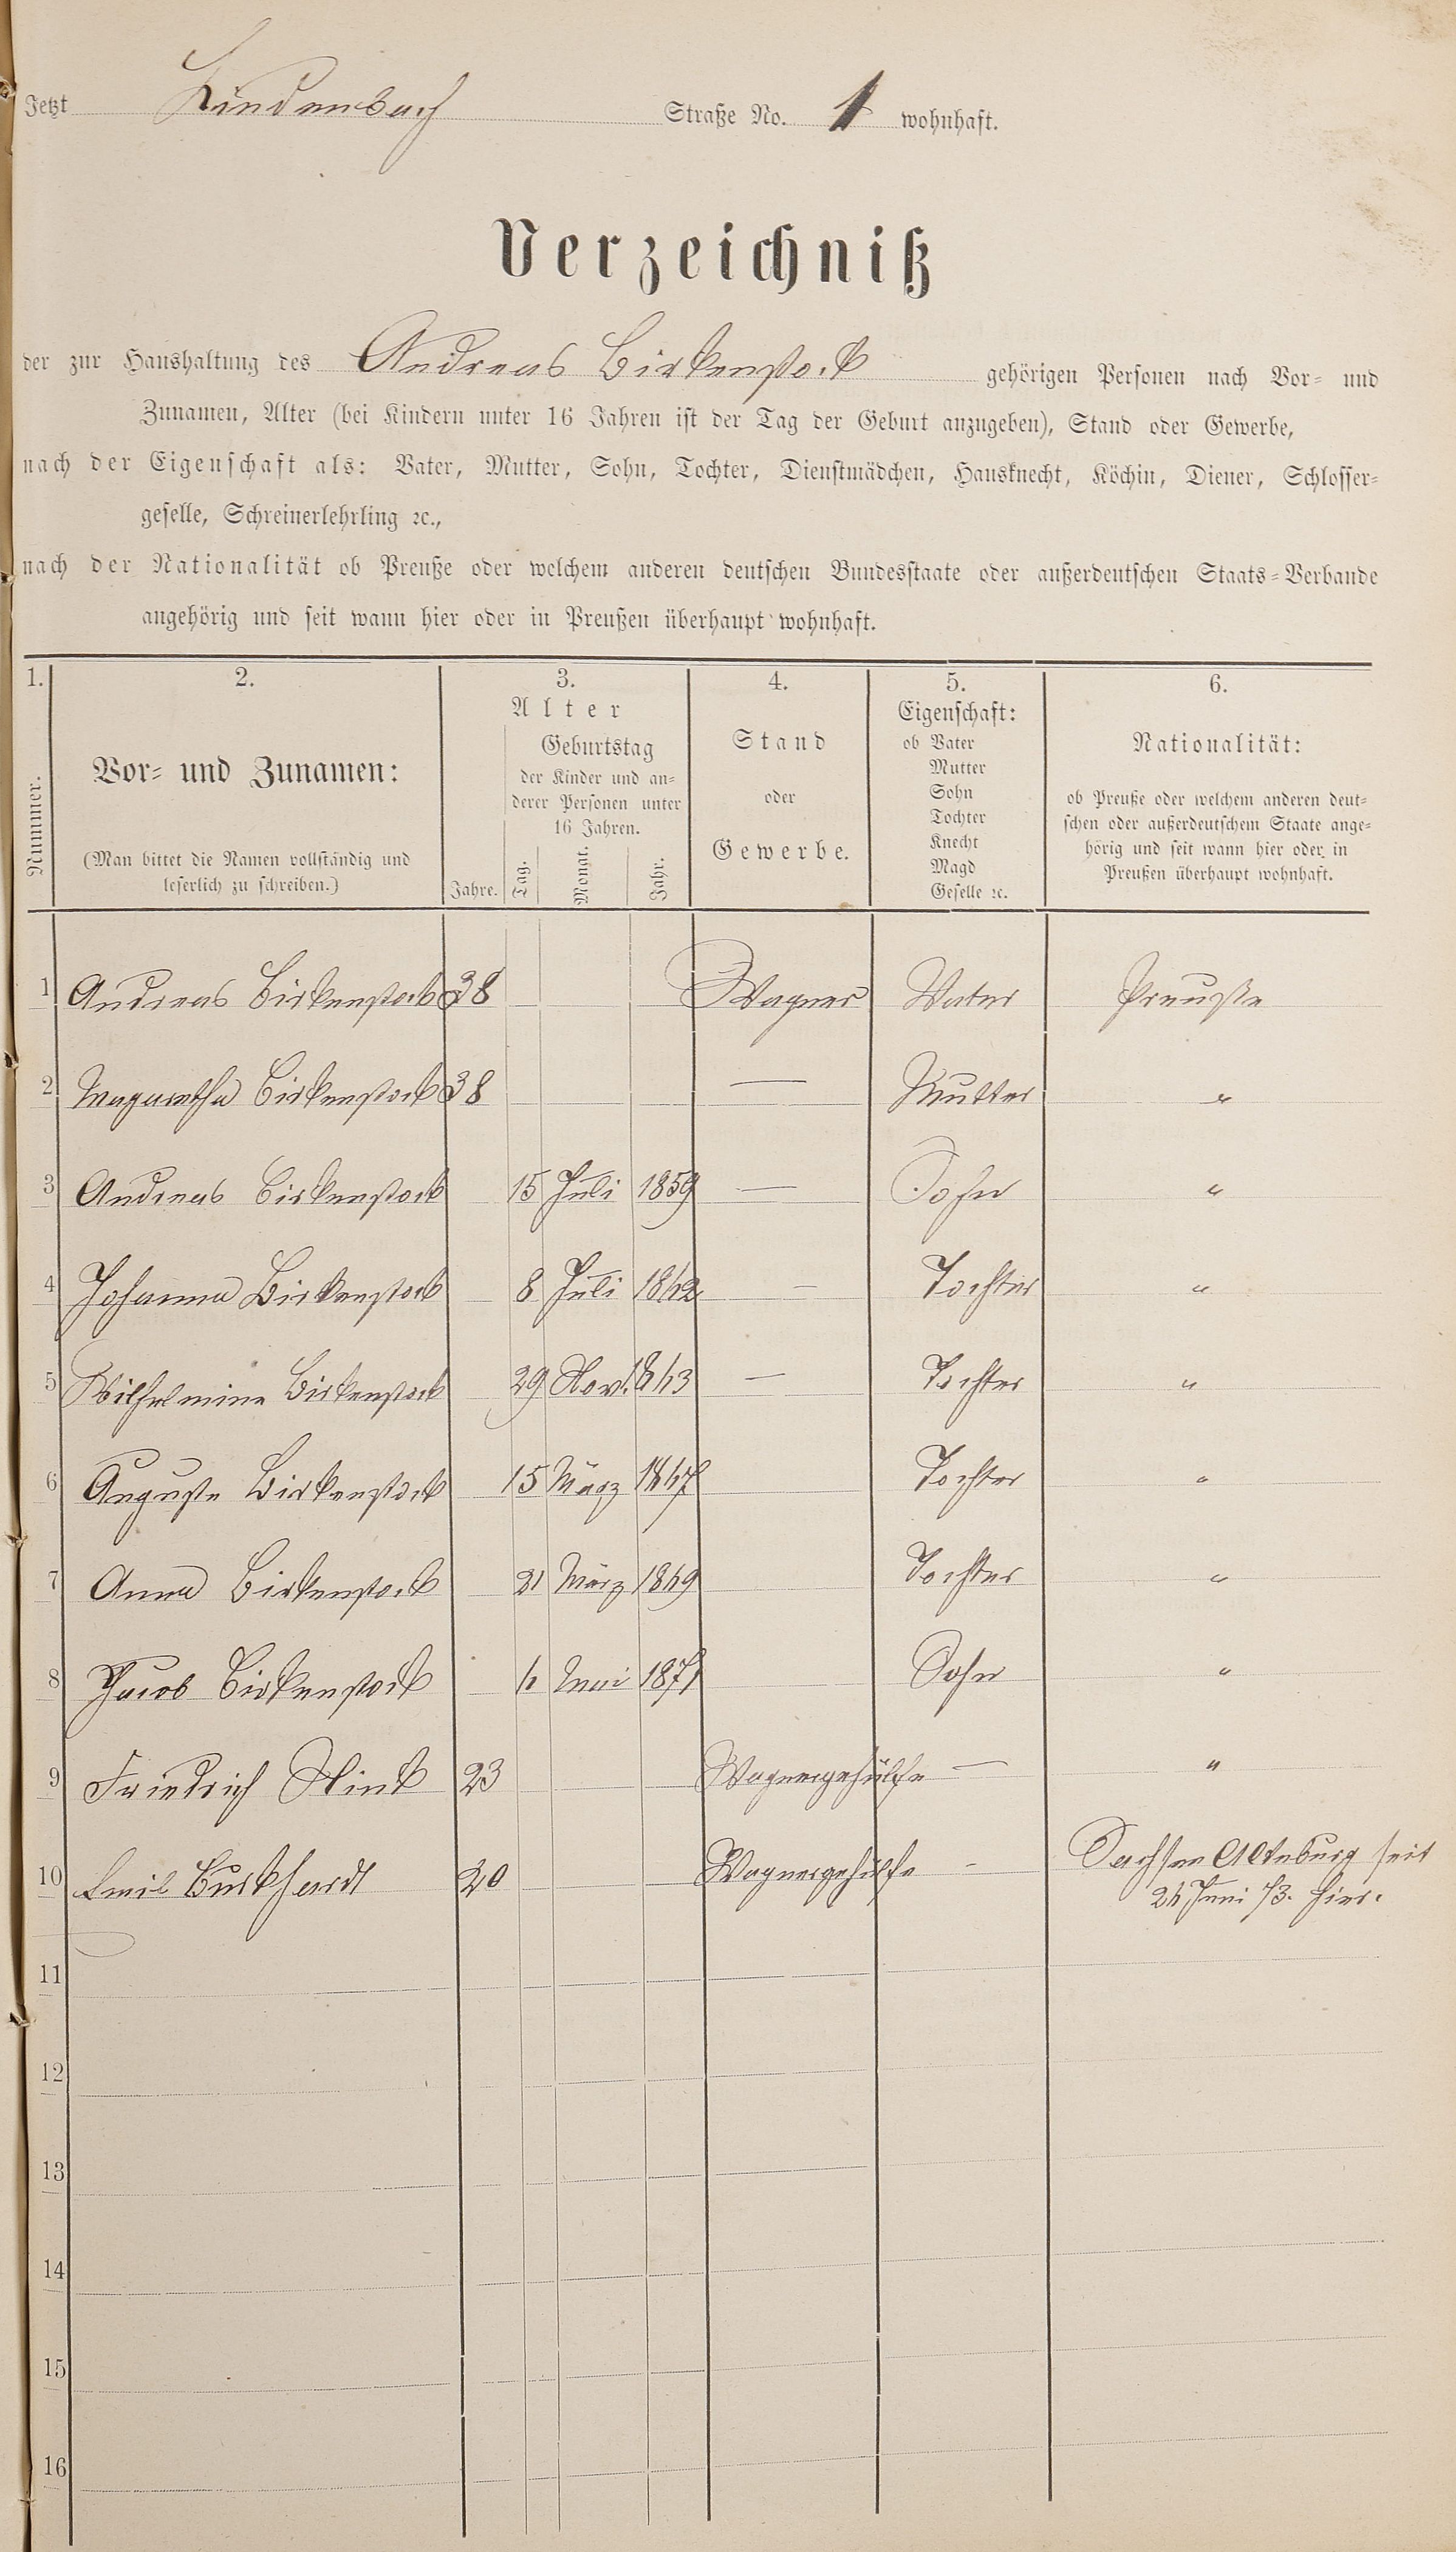 Jetzt Lindenbach Straße No. 1 wohnhaft.
Verzeichniß
der zur Haushaltung des Andreas Birkenstock gehörigen Personen nach Vor- und
Zunamen, Alter (bei Kindern unter 16 Jahren ist der Tag der Geburt anzugeben), Stand oder Gewerbe,
nach der Eigenschaft als: Vater, Mutter, Sohn, Tochter, Dienstmädchen, Hausknecht, Köchin, Diener, Schlosser-
geselle, Schreinerlehrling ꝛc.,
nach der Nationalität ob Preuße oder welchem anderen deutschen Bundesstaate oder außerdeutschen Staats-Verbande
angehörig und seit wann hier oder in Preußen überhaupt wohnhaft.
1. 2. 3. 4. 5. 6.
Nummer.
Vor- und Zunamen:
(Man bittet die Namen vollständig und
leserlich zu schreiben.)
Alter
Jahre.
Geburtstag
der Kinder und an-
derer Personen unter
16 Jahren.
Tag. Monat. Jahr.
Stand
oder
Gewerbe.
Eigenschaft:
ob Vater
Mutter
Sohn
Tochter
Knecht
Magd
Geselle ꝛc.
Nationalität:
ob Preuße oder welchem anderen deut-
schen oder außerdeutschem Staate ange-
hörig und seit wann hier oder in
Preußen überhaupt wohnhaft.
1 Andreas Birkenstock 38 Wagner Vater Preuße
2 Magaretha Birkenstock 38 — Mutter "
3 Andreas Birkenstock 15 Juli 1859 — Sohn "
4 Johanna Birkenstock 8 Juli 1862 — Tochter "
5 Wilhelmine Birkenstock 29 Nov. 1863 — Tochter "
6 Auguste Birkenstock 15 März 1867 Tochter "
7 Anna Birkenstock 21 März 1869 Tochter "
8 Jacob Birkenstock 6 Mai 1871 Sohn "
9 Friedrich 23 Wagnergehülfe — "
10 Emil Burkhardt 20 Wagnergehülfe - Sachsen Altenburg seit
26 Juni 73. hier.
11
12
13
14
15
16